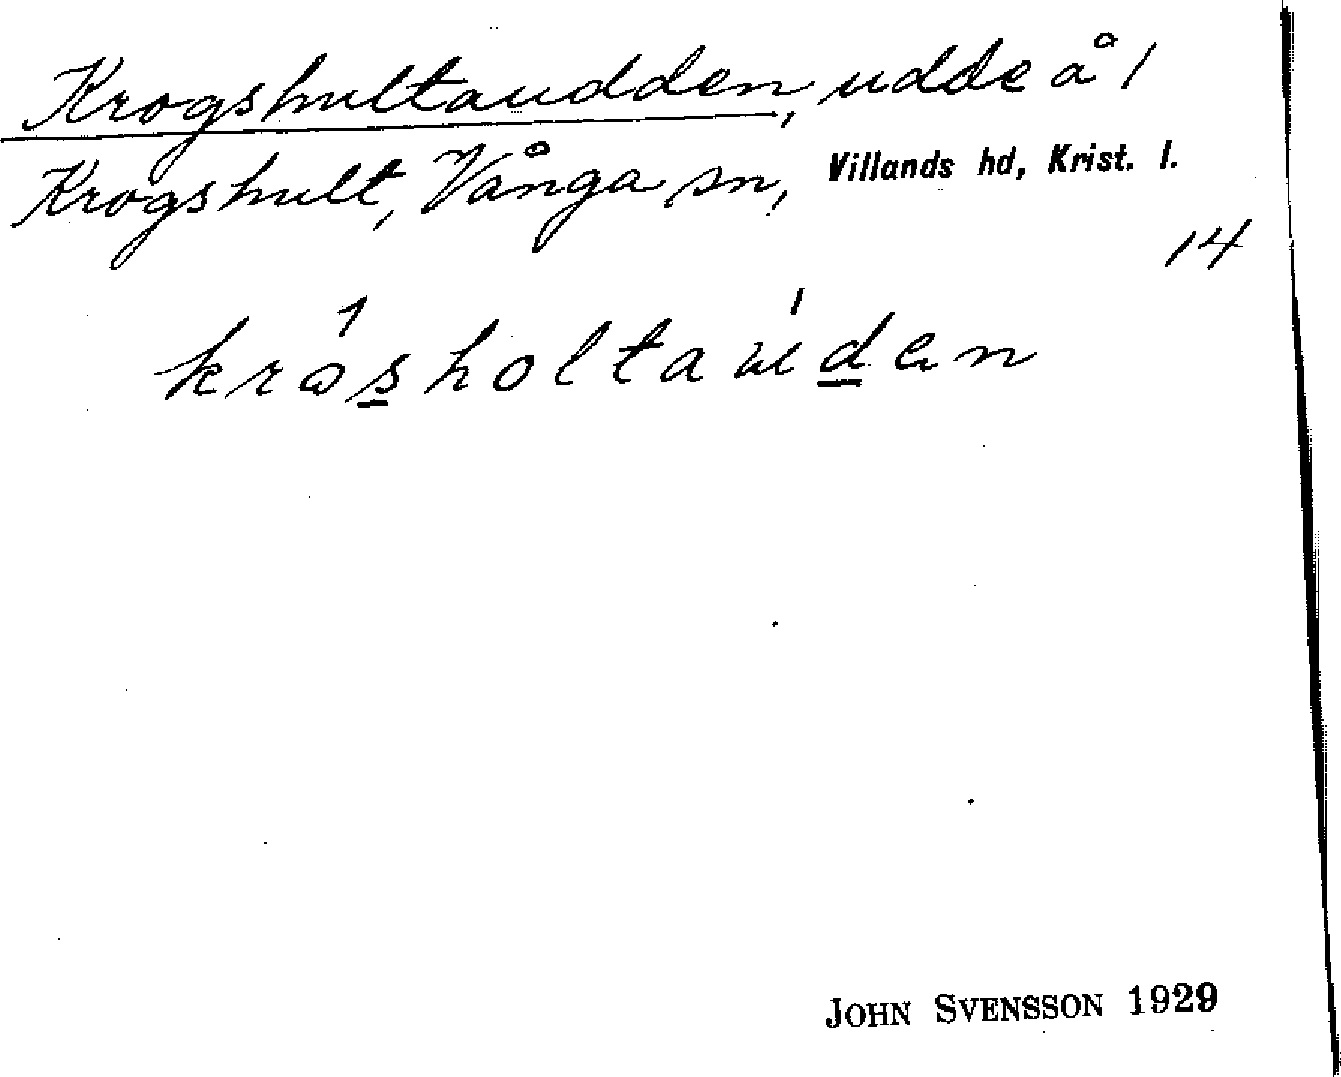 Krogshultaudden, udde å 1
Krogshult, Vånga sn, Villands hd, Krist. l.
14
JOHN SVENSSON 1929